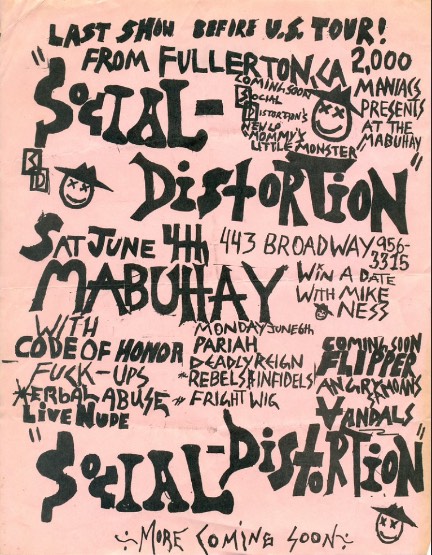 LAST SHOW BEFORE U.S. TOUR!
FROM FULLERTON, CA
2,000
MANIACS
PRESENTS
AT THE
MABUHAY
COMING SOON
SOCIAL
DISTORTION'S
NEW LP
"MOMMY'S
LITTLE MONSTER
"SOCIAL-
DISTORTION"
SD
SAT JUNE 4th
443 BROADWAY 956-
3315
MABUHAY
WIN A DATE
WITH MIKE
NESS
WITH
CODE OF HONOR
FUCK-UPS
VERBAL ABUSE
LIVE NUDE
MONDAY JUNE 6th
PARIAH
DEADLY REIGN
REBELS & INFIDELS
FRIGHT WIG
COMING SOON
FLIPPER
ANGRY SAMOANS
VANDALS
"SOCIAL-DISTORTION"
MORE COMING SOON